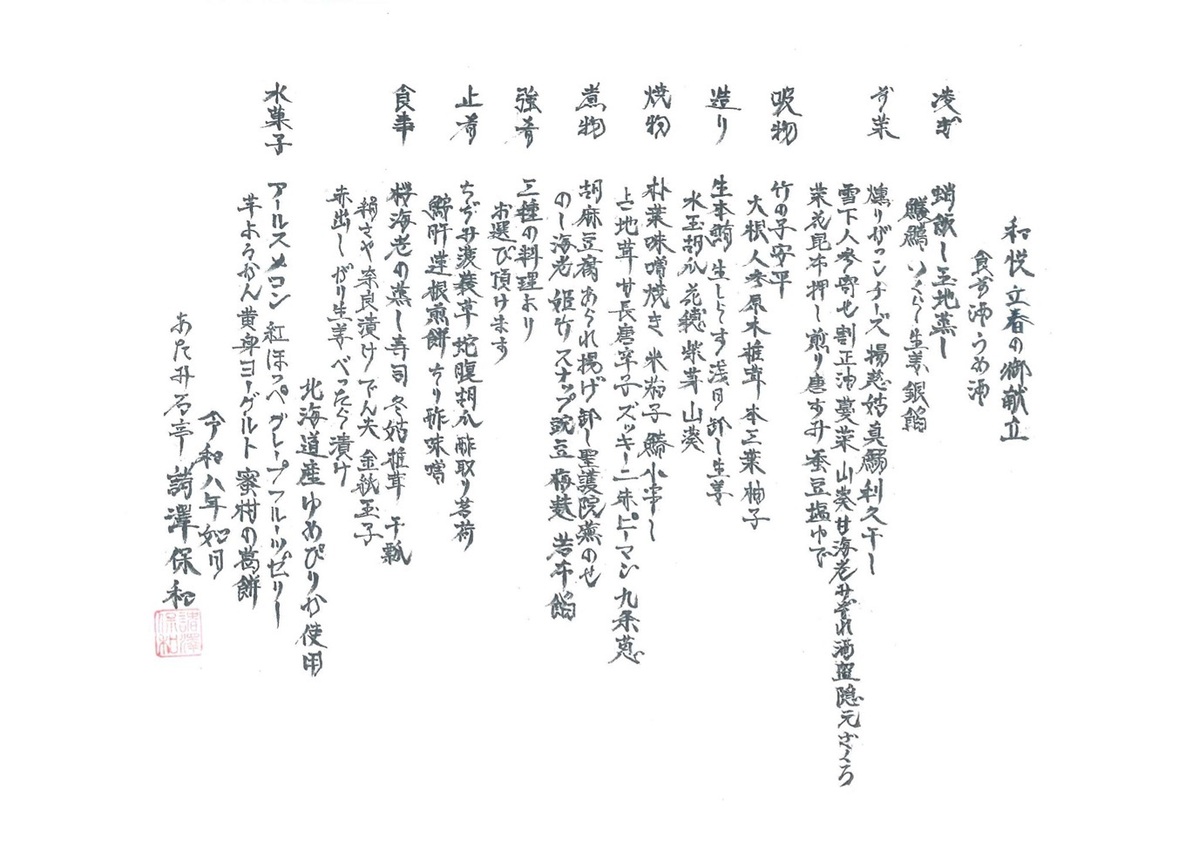 和悦 立春の御献立
食前酒 うめ酒
凌ぎ 蛸飯し 玉地蒸し
いくら 生姜 銀餡
前菜 燻りがっこチーズ 揚慈姑 真鰯利久干し
雪下人参寄せ 割正油 蔓菜 山葵 甘海老みぞれ 酒盗 隠元 ざくろ
菜花昆布押し 煎り唐すみ 蚕豆塩ゆで
吸物 竹の子安平
大根 人参 原木椎茸 本三葉 柚子
造り 生本鮪 生しらす 浅月 卸し生姜
水玉胡瓜 花穂 紫芽 山葵
焼物 朴葉味噌焼き 米粉子 鰆 小串し
占地茸 甘長唐辛子 ズッキーニ 朱ピーマン 九条葱
煮物 胡麻豆腐あられ揚げ 卸し聖護院蕪のせ
のし海老 姫竹 スナップ豌豆 梅麩 苦本餡
強肴 三種の料理より
お選び頂けます
止肴 ちぢみ菠薐草 蛇腹胡瓜 酢取り茗荷
鮟肝 蓮根煎餅 ちり酢味噌
食事 桜海老の蒸し寿司 冬姑椎茸 干瓢
絹さや 奈良漬け でん夫 金紙玉子
赤出し がり生姜 べったら漬け
北海道産ゆめぴりか使用
水菓子 アールスメロン 紅ほっぺ グレープフルーツゼリー
羊ようかん 黄身ヨーグルト 蜜柑の葛餅
令和八年如月
あたみ石亭 請澤保和
請澤保和